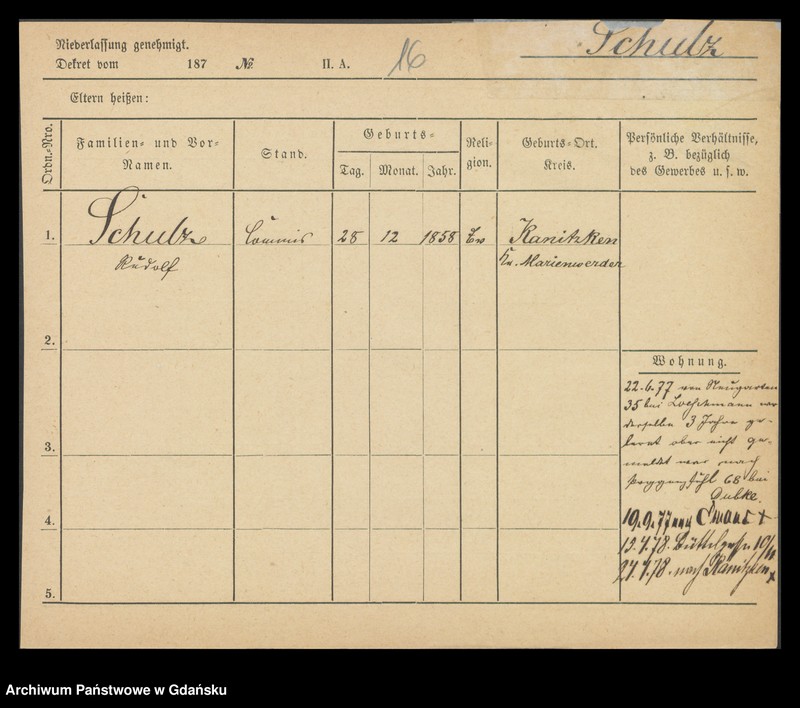 Niederlassung genehmigt.
Schulz
Dekret vom 187 № II. A. 16
Eltern heißen:
Ordn.-Nro.
Familien- und Vor-
Namen.
Stand.
Geburts-
Tag. Monat. Jahr.
Reli-
gion.
Geburts-Ort.
Kreis.
Persönliche Verhältnisse,
z. B. bezüglich
des Gewerbes u. s. w.
1. Schulz Commis 28 12 1858 Ev Kanitzken
Rudolf Kr. Marienwerder
2.
Wohnung.
22.6.77 von Neugarten
35 bei wo
derselbe 3 Jahre ge-
lernt aber nicht ge-
meldet war nach
Poggenpfuhl 68 bei
Dubke.
3.
19.9.77 nach Emaus +
4.
13.4.78. Büttelgasse 10/11
27.4.78. nach Kanitzken +
5.
Archiwum Państwowe w Gdańsku